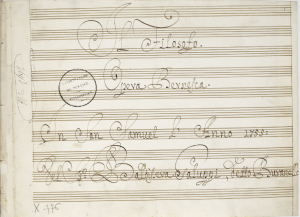 Il Filosofo.
Opera Bernesca.
In San Samuel L'Anno 1735:
Baldissera Galuppi, detto Buranello
X-116